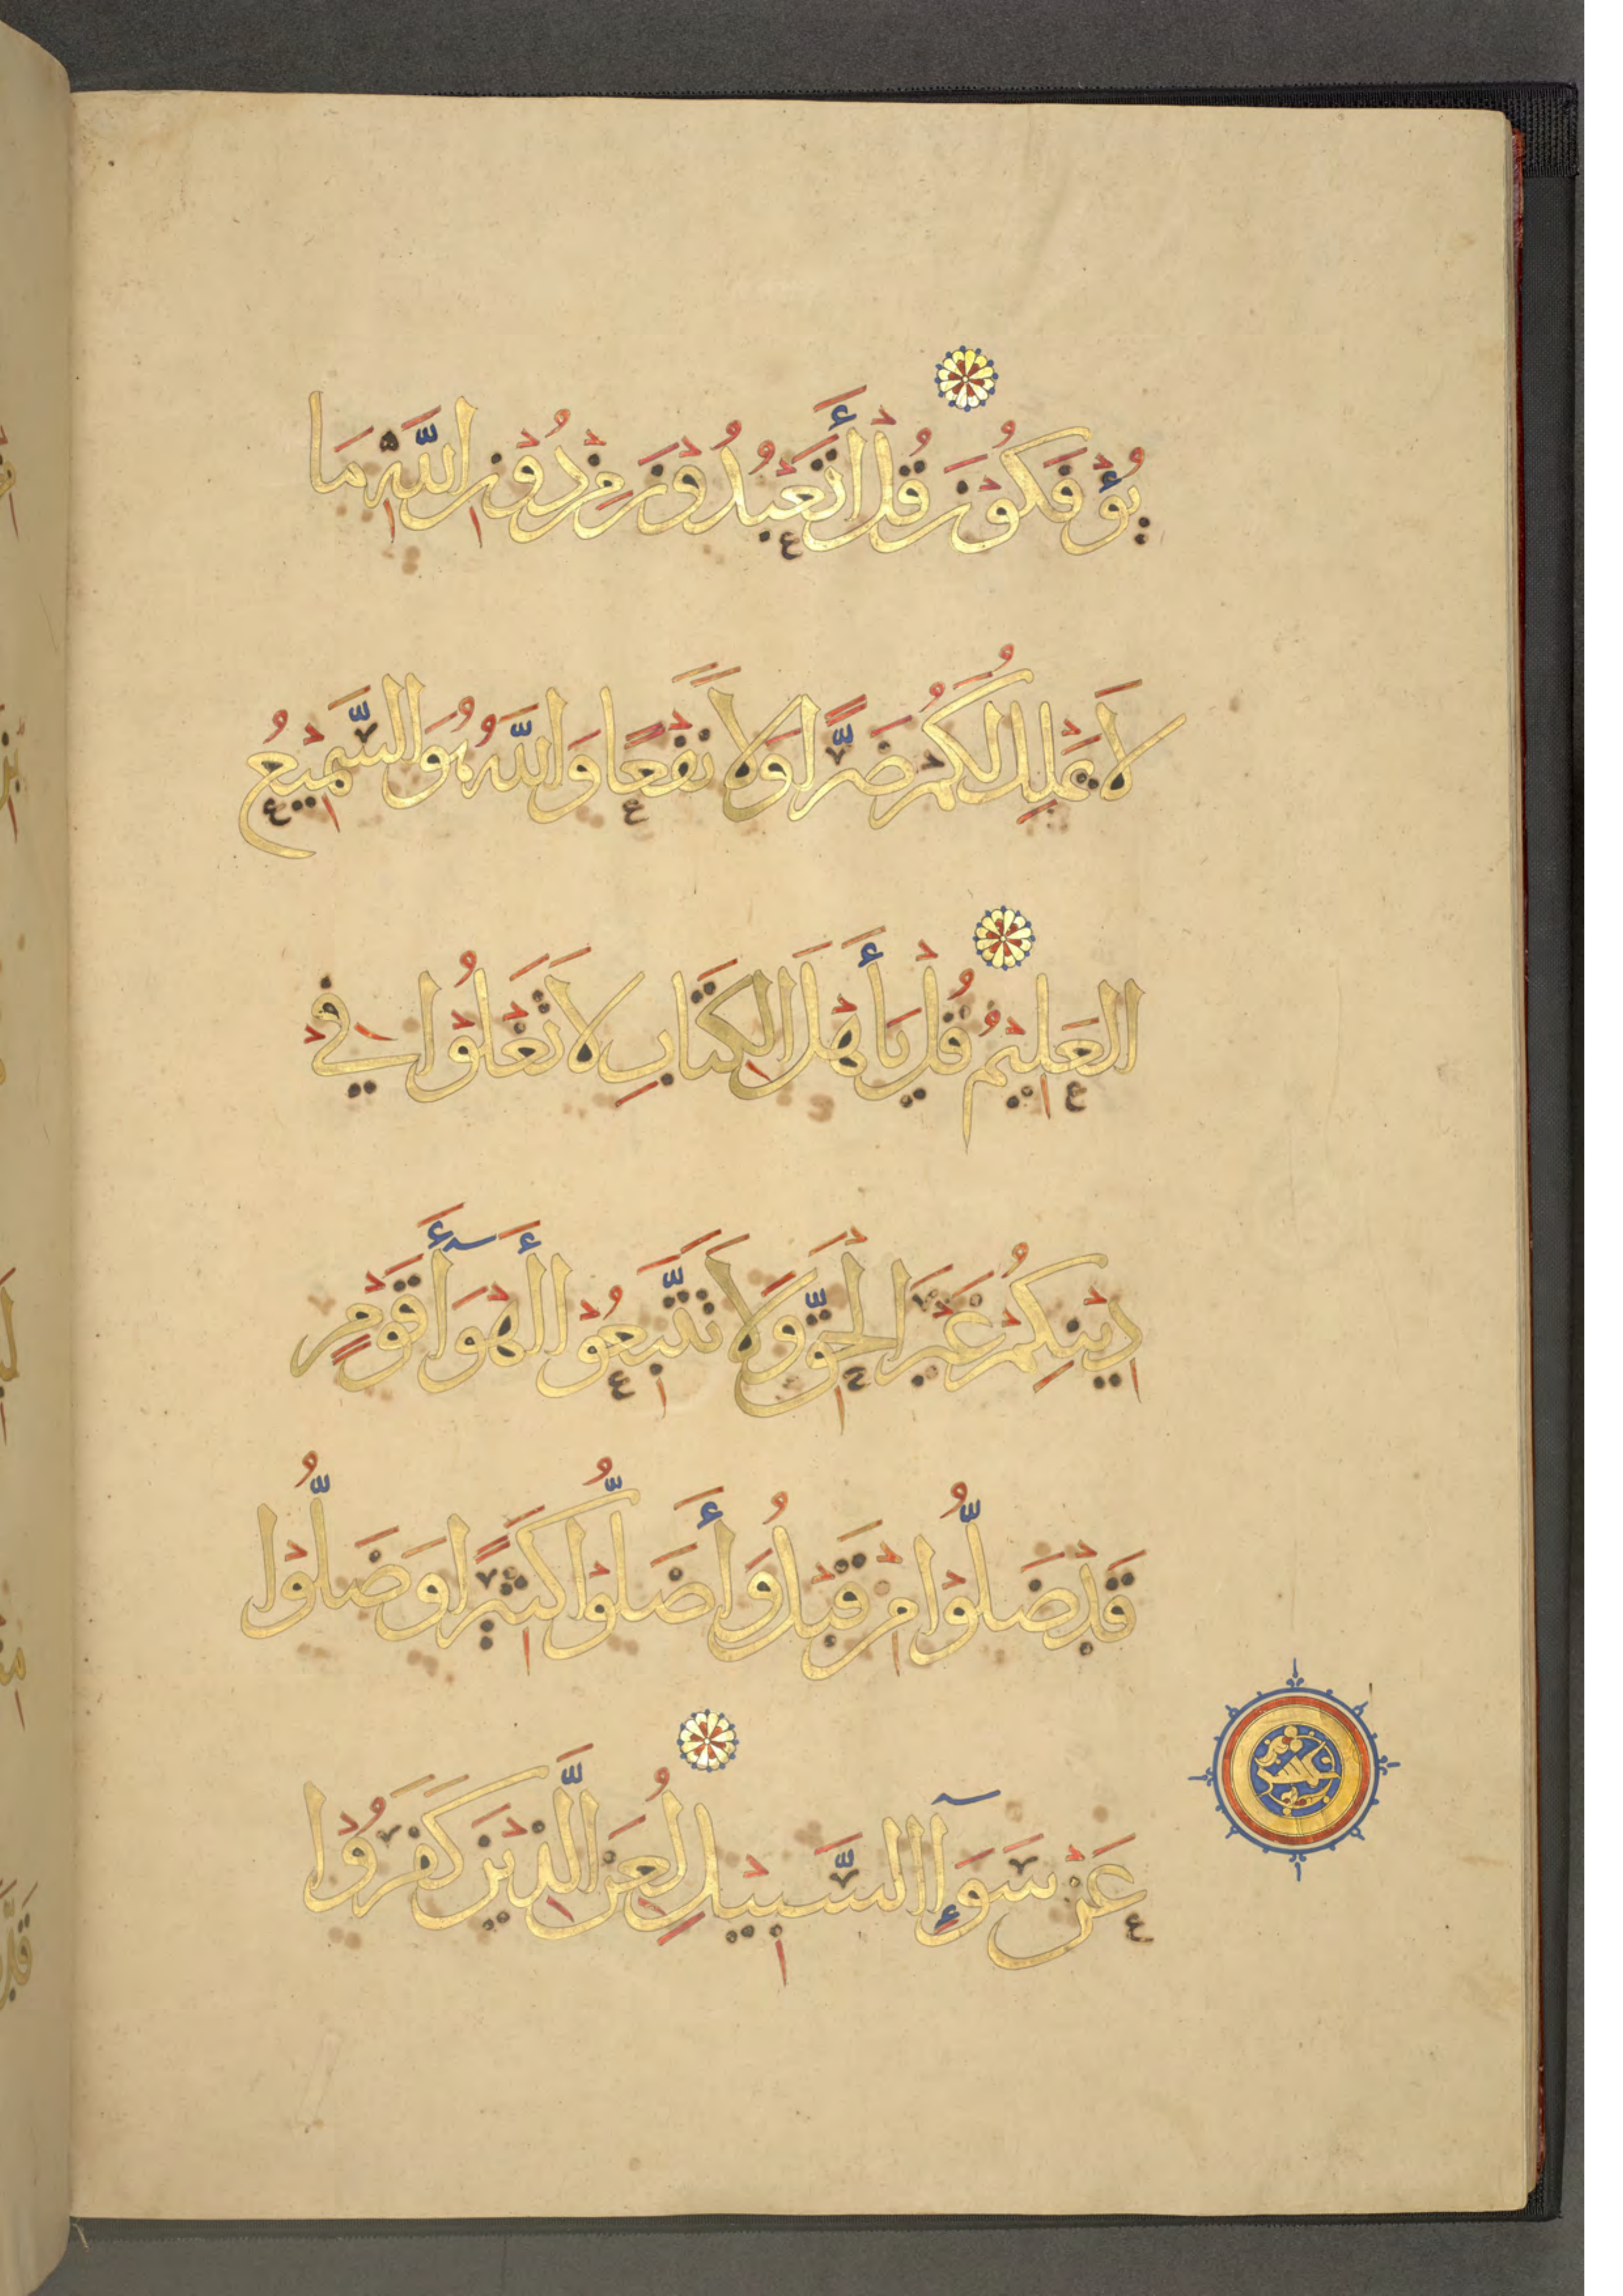 يُؤْفَكُونَ قُلْ أَتَعْبُدُونَ مِنْ دُونِ اللَّهِ مَا
لَا يَمْلِكُ لَكُمْ ضَرًّا وَلَا نَفْعًا وَاللَّهُ هُوَ السَّمِيعُ
الْعَلِيمُ قُلْ يَا أَهْلَ الْكِتَابِ لَا تَغْلُوا فِي
دِينِكُمْ غَيْرَ الْحَقِّ وَلَا تَتَّبِعُوا أَهْوَآءَ قَوْمٍ
قَدْ ضَلُّوا مِنْ قَبْلُ وَأَضَلُّوا كَثِيرًا وَضَلُّوا
عَنْ سَوَآءِ السَّبِيلِ لُعِنَ الَّذِينَ كَفَرُوا